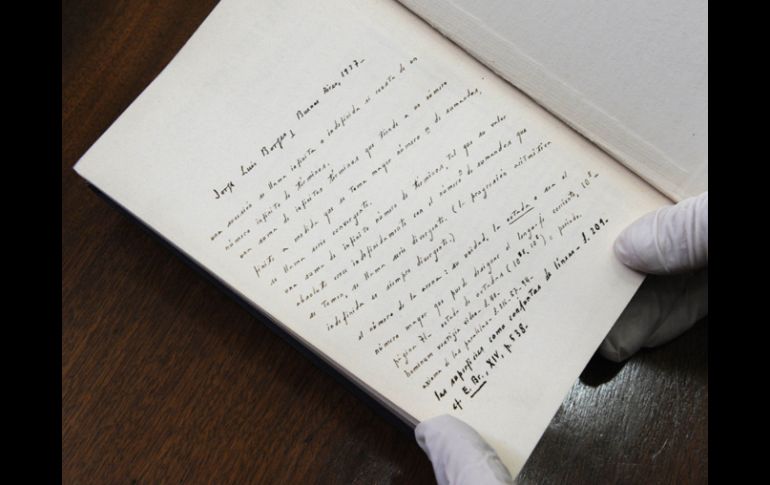 Jorge Luis Borges, Buenos Aires, 1937—
una sucesión se llama infinita o indefinida si consta de un
número infinito de términos.
una suma de infinitos términos que tiende a un número
finito a medida que se toma mayor número n de sumandos,
se llama serie convergente.
una suma de infinito número de términos, tal que su valor
absoluto crece indefinidamente con el número de sumandos que
se toman, se llama serie divergente. (la progresión aritmética
indefinida es siempre divergente.)
el número de la acena: es unidad, la octada o sea el
número mayor que puede designar el lenguaje corriente, 10⁸.
octada de octadas (10⁸·10⁸), o período.
hominum vestigia video.
axioma de las paralelas
las superficies como confontas de líneas— 1.209.
cf. E. Br., XIV, p. 538.